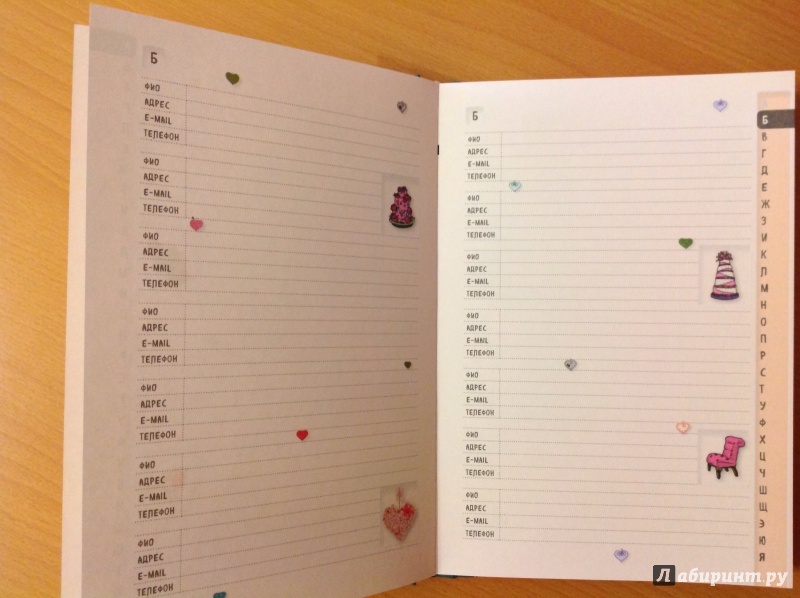 Б
ФИО
АДРЕС
E-MAIL
ТЕЛЕФОН
ФИО
АДРЕС
E-MAIL
ТЕЛЕФОН
ФИО
АДРЕС
E-MAIL
ТЕЛЕФОН
ФИО
АДРЕС
E-MAIL
ТЕЛЕФОН
ФИО
АДРЕС
E-MAIL
ТЕЛЕФОН
ФИО
АДРЕС
E-MAIL
ТЕЛЕФОН
ФИО
АДРЕС
E-MAIL
ТЕЛЕФОН
Б
ФИО
АДРЕС
E-MAIL
ТЕЛЕФОН
ФИО
АДРЕС
E-MAIL
ТЕЛЕФОН
ФИО
АДРЕС
E-MAIL
ТЕЛЕФОН
ФИО
АДРЕС
E-MAIL
ТЕЛЕФОН
ФИО
АДРЕС
E-MAIL
ТЕЛЕФОН
ФИО
АДРЕС
E-MAIL
ТЕЛЕФОН
ФИО
АДРЕС
E-MAIL
ТЕЛЕФОН
Б
В
Г
Д
Е
Ж
З
И
К
Л
М
Н
О
П
Р
С
Т
У
Ф
Х
Ц
Ч
Ш
Щ
Э
Ю
Я
Лабиринт.ру